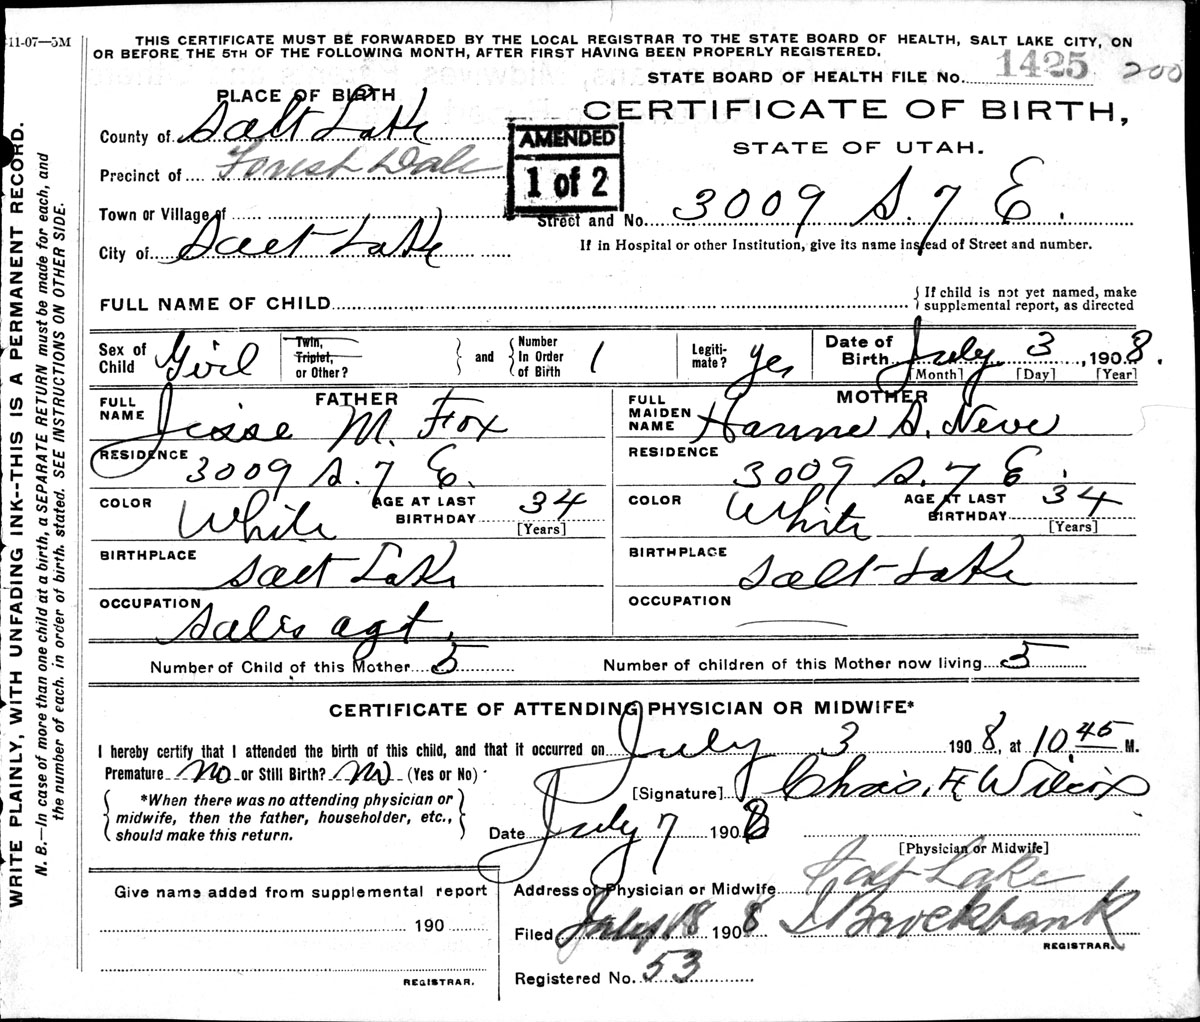 11-07—5M
THIS CERTIFICATE MUST BE FORWARDED BY THE LOCAL REGISTRAR TO THE STATE BOARD OF HEALTH, SALT LAKE CITY, ON
OR BEFORE THE 5TH OF THE FOLLOWING MONTH, AFTER FIRST HAVING BEEN PROPERLY REGISTERED.
STATE BOARD OF HEALTH FILE No. 1425 200
PLACE OF BIRTH
CERTIFICATE OF BIRTH,
STATE OF UTAH.
County of Salt Lake
AMENDED
1 of 2
Precinct of Forest Dale
Town or Village of
Street and No. 3009 S. 7 E.
City of Salt Lake
If in Hospital or other Institution, give its name instead of Street and number.
FULL NAME OF CHILD
{ If child is not yet named, make
supplemental report, as directed
Sex of Child Girl
Twin, Triplet, or Other?
} and { Number In Order of Birth 1
Legiti-mate? yes
Date of Birth July 3, 1908.
[Month] [Day] [Year]
FATHER
FULL NAME Jesse M. Fox
RESIDENCE 3009 S. 7 E.
COLOR White
AGE AT LAST BIRTHDAY 34
[Years]
BIRTHPLACE Salt Lake
OCCUPATION Sales agt.
MOTHER
FULL MAIDEN NAME Hanne S. Neve
RESIDENCE 3009 S. 7 E.
COLOR White
AGE AT LAST BIRTHDAY 34
[Years]
BIRTHPLACE Salt Lake
OCCUPATION
Number of Child of this Mother 5
Number of children of this Mother now living 5
CERTIFICATE OF ATTENDING PHYSICIAN OR MIDWIFE*
I hereby certify that I attended the birth of this child, and that it occurred on July 3 1908, at 10.45 M.
Premature No or Still Birth? No (Yes or No)
*When there was no attending physician or
midwife, then the father, householder, etc.,
should make this return.
[Signature] Chas. F. Wilcox
Date July 7 1908
[Physician or Midwife]
Address of Physician or Midwife Salt Lake
Filed July 18 1908 Brockbank
REGISTRAR.
Registered No. 53
Give name added from supplemental report
190
REGISTRAR.
WRITE PLAINLY, WITH UNFADING INK--THIS IS A PERMANENT RECORD.
N. B.—In case of more than one child at a birth, a SEPARATE RETURN must be made for each, and
the number of each, in order of birth, stated. SEE INSTRUCTIONS ON OTHER SIDE.